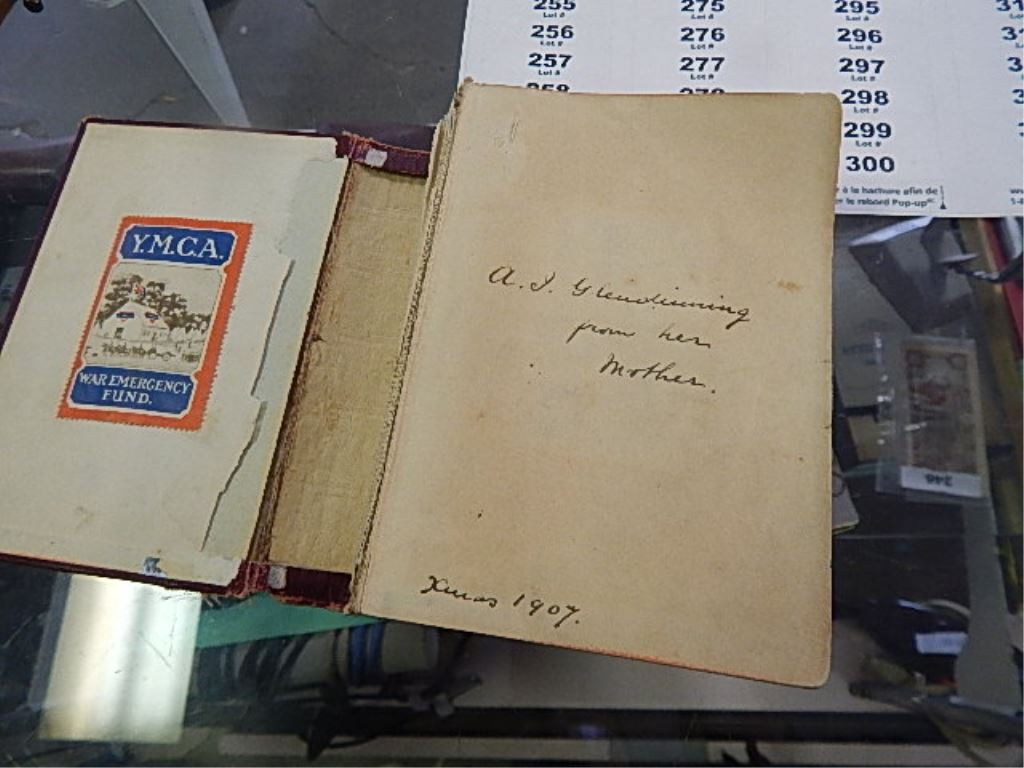 Y.M.C.A.
WAR EMERGENCY
FUND.
A. J. Glendinning
from her
Mother.
Xmas 1907.
255 275 295
Lot # Lot # Lot #
256 276 296
Lot # Lot # Lot #
257 277 297
Lot # Lot # Lot #
258 278 298
Lot #
299
Lot #
300
à la hachure afin de
le rebord Pop-up
246